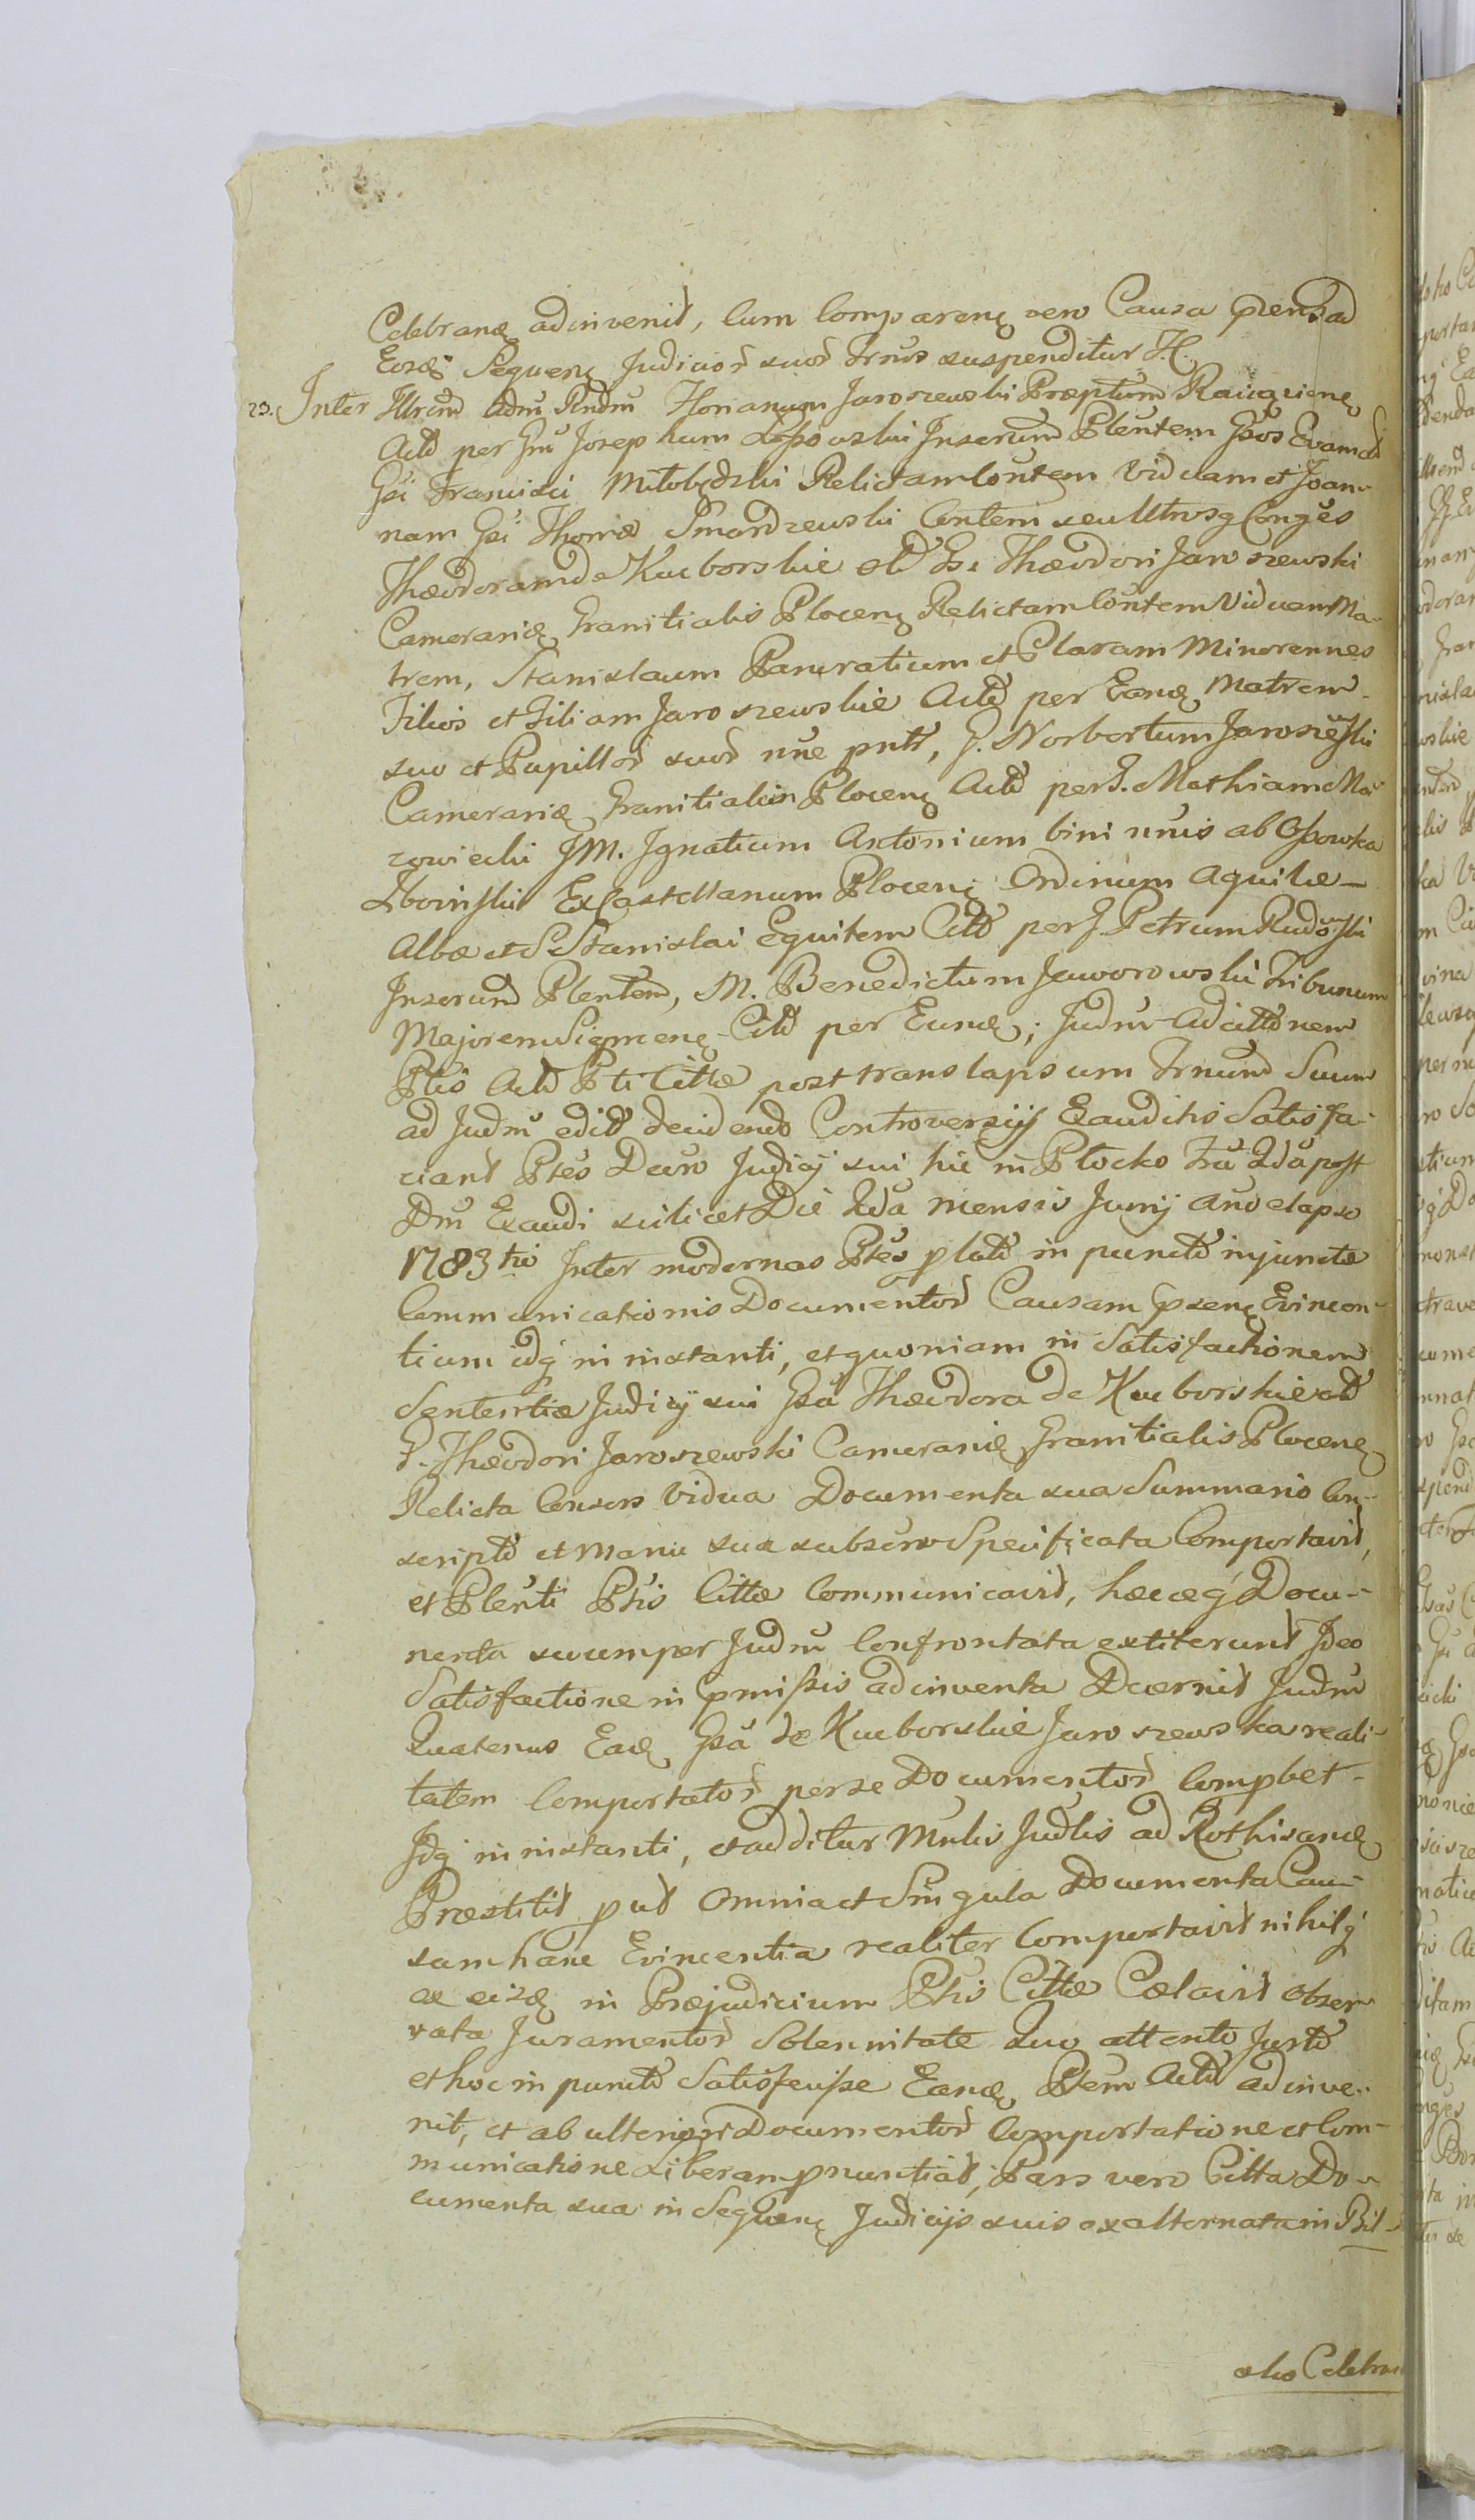 Celebranę adinvenit, Cum Comparenę vero Causa pñs ad
Eosdę Sequenę Judicior suor Trnûs suspenditur H.
23. Inter Illrem adm̃ Rndm̃ Florianum Jaroszewski Præptum Raiugviene
Actt per Gm̃ Josephum Lossowski Inserund Plentem Gsos Evam ad
Gsi Francisci Miłobędzki Relictam Coñtem Viduam et Joan-
nam Gsi Thomæ Smardzewski Contem seu Utrosq Conges
Theodoram de Kuborskie old Gsi Theodori Jaroszewski
Camerarię Granitialis Plocenę Relictam Coñtem Viduam Ma-
trem, Stanislaum Pancratium et Claram Minorennes
Filios et Filiam Jaroszewskie Actt per Eandę Matrem
suo et Pupillor suor nñe pntt, G. Norbertum Jaroszewski
Camerarię Granitialem Plocenę Actt per G. Mathiam Ma-
zowiecki JM. Ignatium Antonium bini nnis ab Ossowka
Zboinski ExCastellanum Plocenę Ordinum Aquilæ
Albæ et S Stanislai Equitem Citt per G. Petrum Rudowski
Inserund Plentem, M. Benedictum Jaworowski Tribunum
Majorem Sigmenę Citt per Eundę; Judm̃ Ad cittõnem
Ptis Actt Pti Cittæ post translapsum Trnum Suum
ad Judm̃ edit decidendo Controversiis Exauditis Satisfa-
ciant Ptes Decro Judicij sui hic in Płocko fra 2dâ post
Dm̃ Exaudi scilicet Die 2dâ mensis Junij año elapso
1783tio Inter modernas Ptes plato in puncto injunctæ
Communicationis Documentor Causam pñsenę Evincen-
tium idq in instanti, et quoniam in Satisfactionem
Sententiæ Judicij sui Gsa Theodora de Kuborskie old
G. Theodori Jaroszewski Camerarię Granitialis Plocenę
Relicta Consors Vidua Documenta sua Summario Con-
scripto et Manu sua subscro Specificata Comportavit,
et Plenti Ptis Cittæ Communicavit, hæcceq Docu-
menta secum per Judm̃ Confrontata extiterunt Ideo
Satisfactione in pmissis adinventa Decernit Judm̃
Quatenus Eadę Gsâ de Kuborskie Jaroszewska reali-
tatem Comportator per se Documentor Compbet-
Idq in instanti, et additur Mnlis Judlis ad Rothisandę
Præstitit put omnia et Singula Documenta Cau-
sam hanc Evincentia realiter Comportavit nihilq
ex eisdę in Præjudicium Ptis Cittæ Cælavit obser-
vata Juramentor Solennitate Quo attento Justo
et hoc in puncto Satisfecisse Eandę Ptem Actt adinve-
nit, et ab ulteriori Documentor Comportatione et Com-
municatione Liberam pnuntiat, Pars vero Citta Do-
cumenta sua in Sequenę Judicijs suis ex alternata in Bil-
sko Celebran